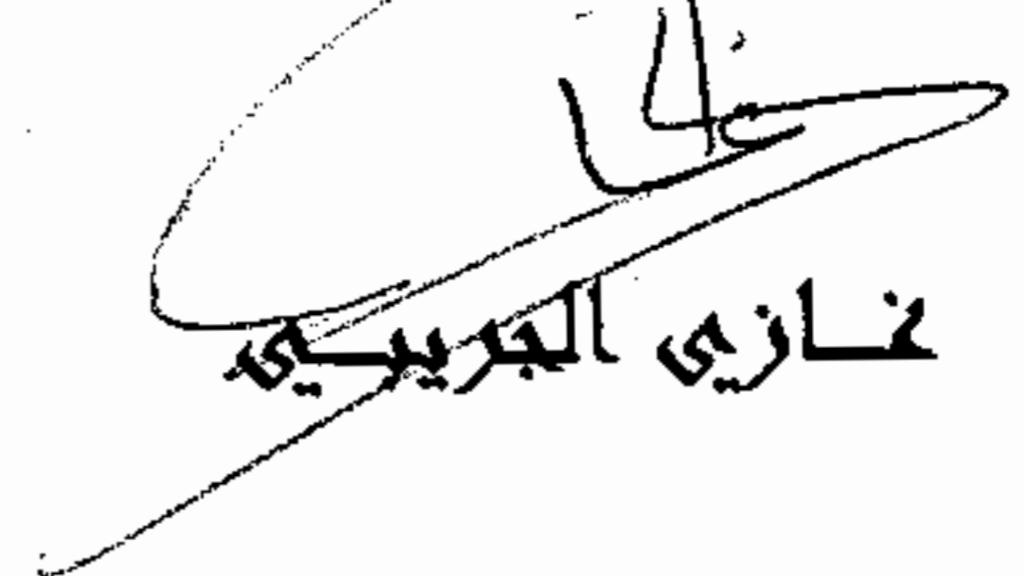 غازي الجريبي